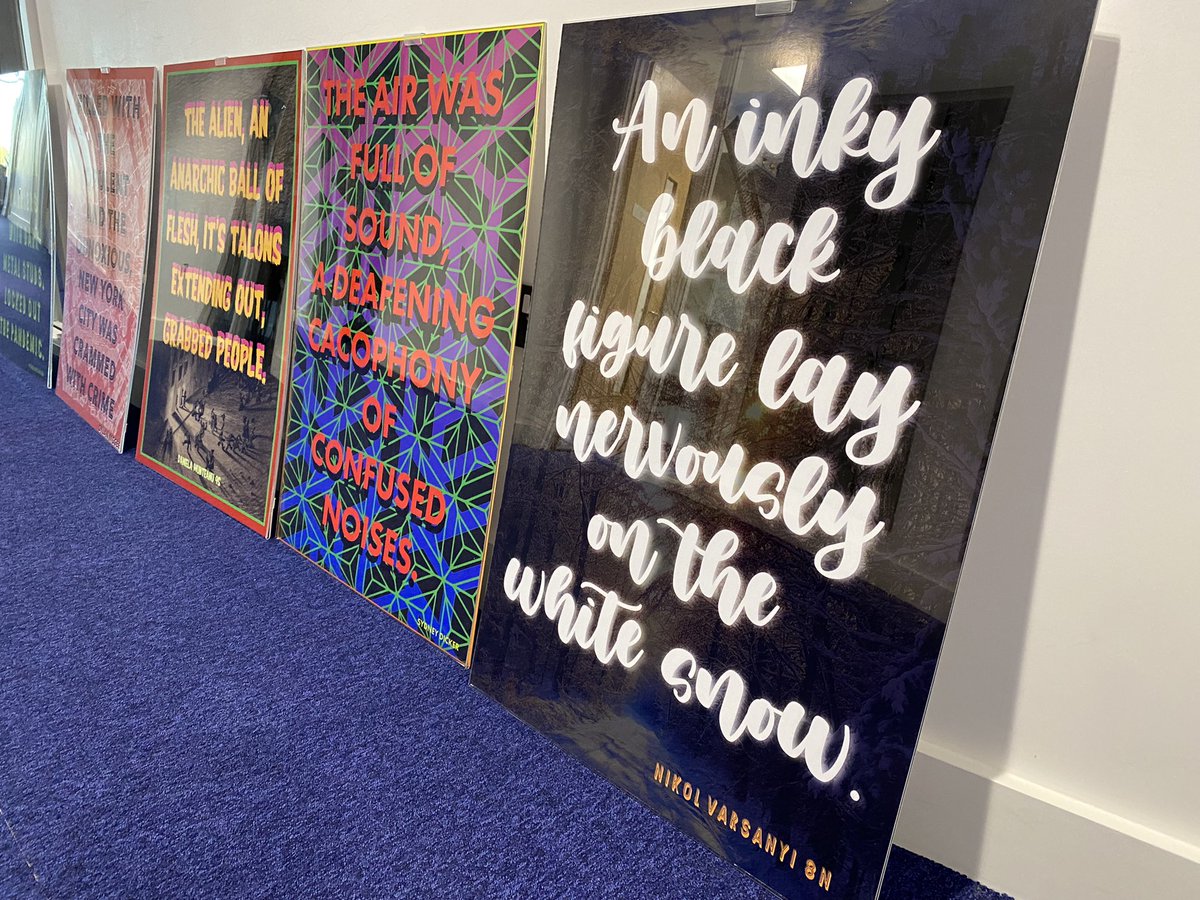 An inky
black
figure lay
nervously
on the
white snow.
NIKOL VARSANYI 8N
THE AIR WAS
FULL OF
SOUND,
A DEAFENING
CACOPHONY
OF
CONFUSED
NOISES.
SYDNEY DICKER
THE ALIEN, AN
ANARCHIC BALL OF
FLESH, IT'S TALONS
EXTENDING OUT,
GRABBED PEOPLE.
WITH
THE
NEW YORK
CITY WAS
CRAMMED
WITH CRIME
METAL STUBS.
LOCKED OUT